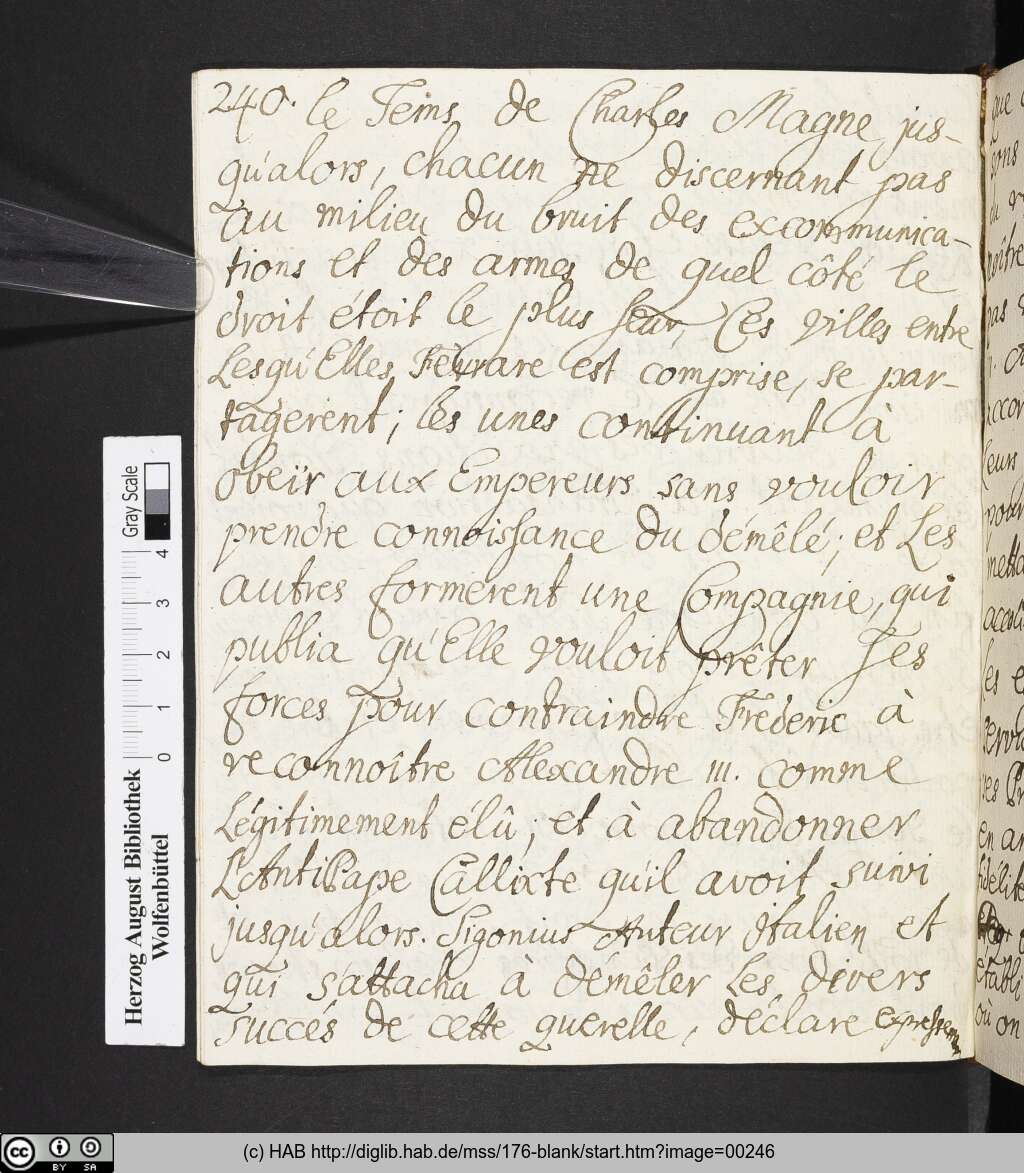 240. le Tems de Charles Magne jus-
qu'alors, chacun ne discernant pas
au milieu du bruit des excommunica-
tions et des armes de quel côté le
droit étoit le plus seur, Ces villes entre
Lesqu'Elles Ferrare est comprise, se par-
tagerent; les unes continuant à
obeïr aux Empereurs sans vouloir
prendre connoissance du démêlé; et Les
autres formerent une Compagnie, qui
publia qu'Elle vouloit prêter Ses
forces pour contraindre Frederic à
reconnoître Alexandre III. comme
Légitimement élû; et à abandonner
L'AntiPape Callixte qu'il avoit suivi
jusqu'alors. Sigonius Auteur Italien et
qui s'attacha à démêler Les divers
succés de cette querelle, déclare expressement
que
sons
du
noître
pas
accor
leurs
pour
metta
accou
les
serva
en ar
fidélité
établi
où on
Gray Scale
4 3 2 1 0
Herzog August Bibliothek
Wolfenbüttel
cc BY SA
(c) HAB http://diglib.hab.de/mss/176-blank/start.htm?image=00246